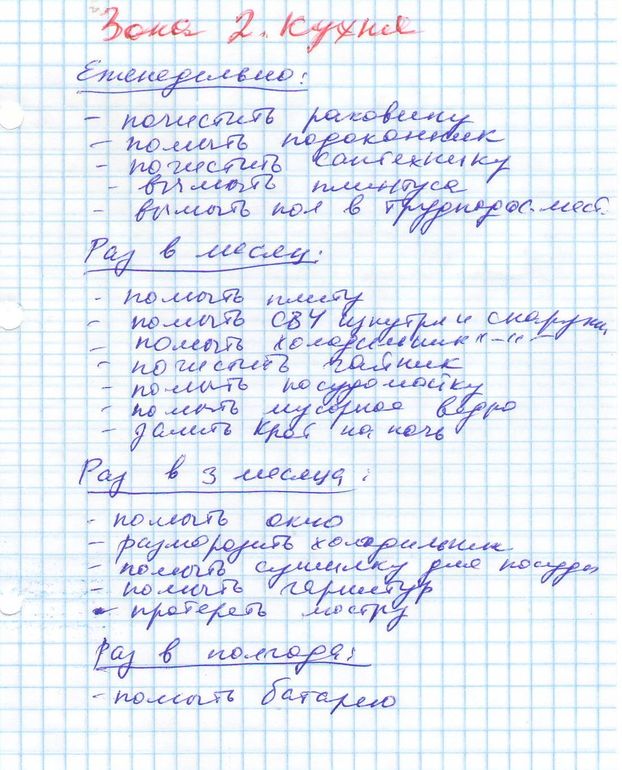 Зона 2. Кухня
Еженедельно:
- почистить раковину
- помыть подоконник
- почистить сантехнику
- вымыть плинтуса
- вымыть пол в труднодос. мест.
Раз в месяц:
- помыть плиту
- помыть СВЧ изнутри и снаружи
- помыть холодильник "-"-
- почистить чайник
- помыть посудомойку
- помыть мусорное ведро
- залить Крот на ночь
Раз в 3 месяца:
- помыть окно
- разморозить холодильник
- помыть сушилку для посуды
- помыть гарнитур
- протереть люстру
Раз в полгода:
- помыть батарею